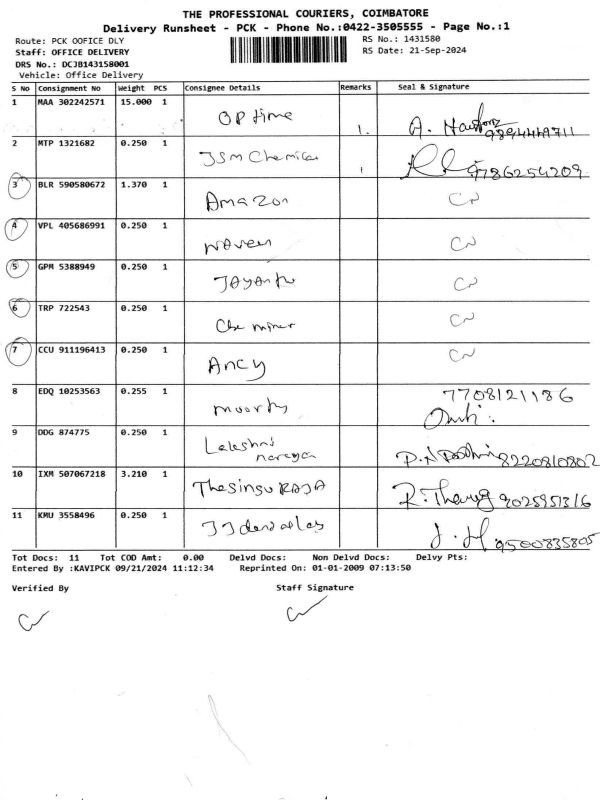 THE PROFESSIONAL COURIERS, COIMBATORE
Delivery Runsheet - PCK - Phone No.:0422-3505555 - Page No.:1
Route: PCK OOFICE DLY
RS No.: 1431580
Staff: OFFICE DELIVERY
RS Date: 21-Sep-2024
DRS No.: DCJB143158001
Vehicle: Office Delivery
S No Consignment No Weight PCS Consignee Details Remarks Seal & Signature
1 MAA 302242571 15.000 1 OP time 1. A. 9894449711
2 MTP 1321682 0.250 1 JSM Chemical 9786254209
3 BLR 590580672 1.370 1 Amazon
4 VPL 405686991 0.250 1 Naveen
5 GPM 5388949 0.250 1
6 TRP 722543 0.250 1 Che miner
7 CCU 911196413 0.250 1 Ancy
8 EDQ 10253563 0.255 1 moorthy 7708121186
9 DDG 874775 0.250 1 Lakshmi
narayan 8220810802
10 IXM 507067218 3.210 1 Thesingu RAJA 9025951316
11 KMU 3558496 0.250 1 9500835805
Tot Docs: 11 Tot COD Amt: 0.00 Delvd Docs: Non Delvd Docs: Delvy Pts:
Entered By :KAVIPCK 09/21/2024 11:12:34 Reprinted On: 01-01-2009 07:13:50
Verified By Staff Signature